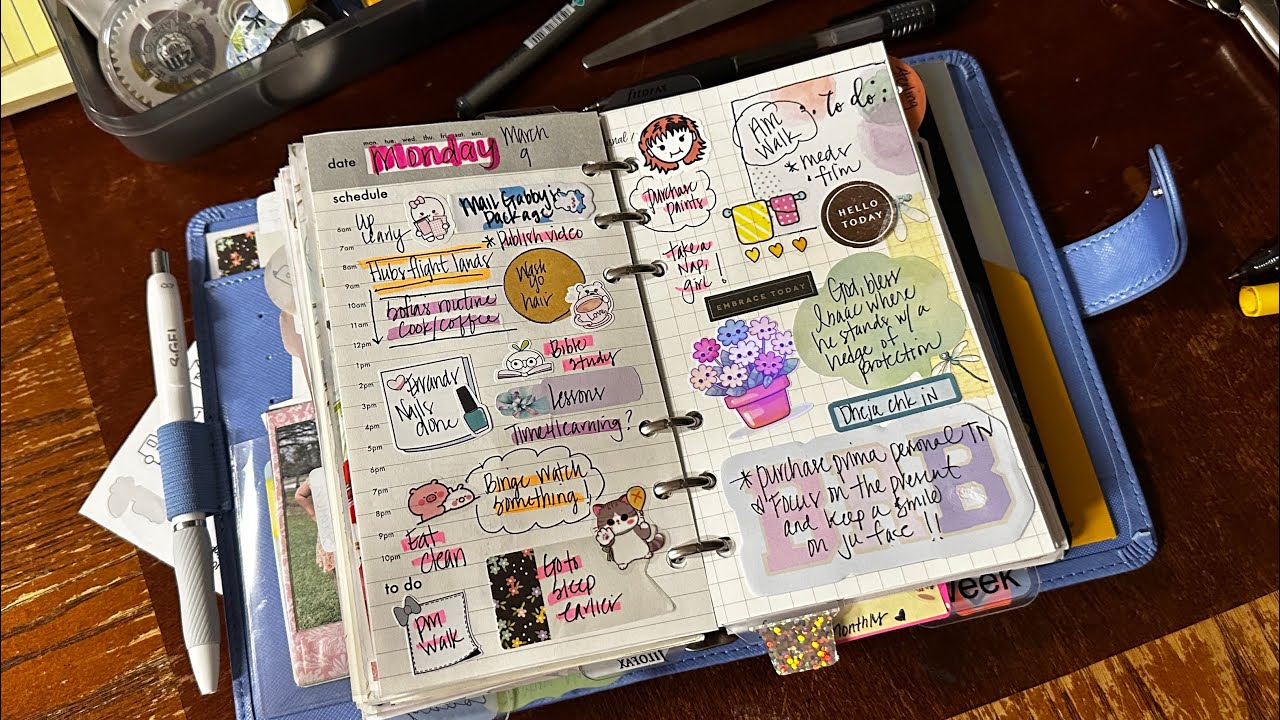 mon. tue. wed. thu. fri. sat. sun.
date Monday March 9
schedule
Up early
Mail Gabby's package
* Publish video
Hubs flight lands
Wash go hair
Sofas routine
Cook/coffee
Love
Bible study
Errands
Nails done
Lessons
Time4learning?
Binge watch something!
Eat clean
Go to sleep earlier
6am
7am
8am
9am
10am
11am
12pm
1pm
2pm
3pm
4pm
5pm
6pm
7pm
8pm
9pm
10pm
to do
PM Walk
FILOFAX
FILOFAX
Purchase paints
take a nap, girl!
AM Walk
to do:
* meds
film
HELLO TODAY
EMBRACE TODAY
God, bless
Isaac where
he stands w/ a
hedge of
protection
chk in
* Purchase prima personal TN
Focus on the present
and keep a smile
on yu face!!
Week
monthly